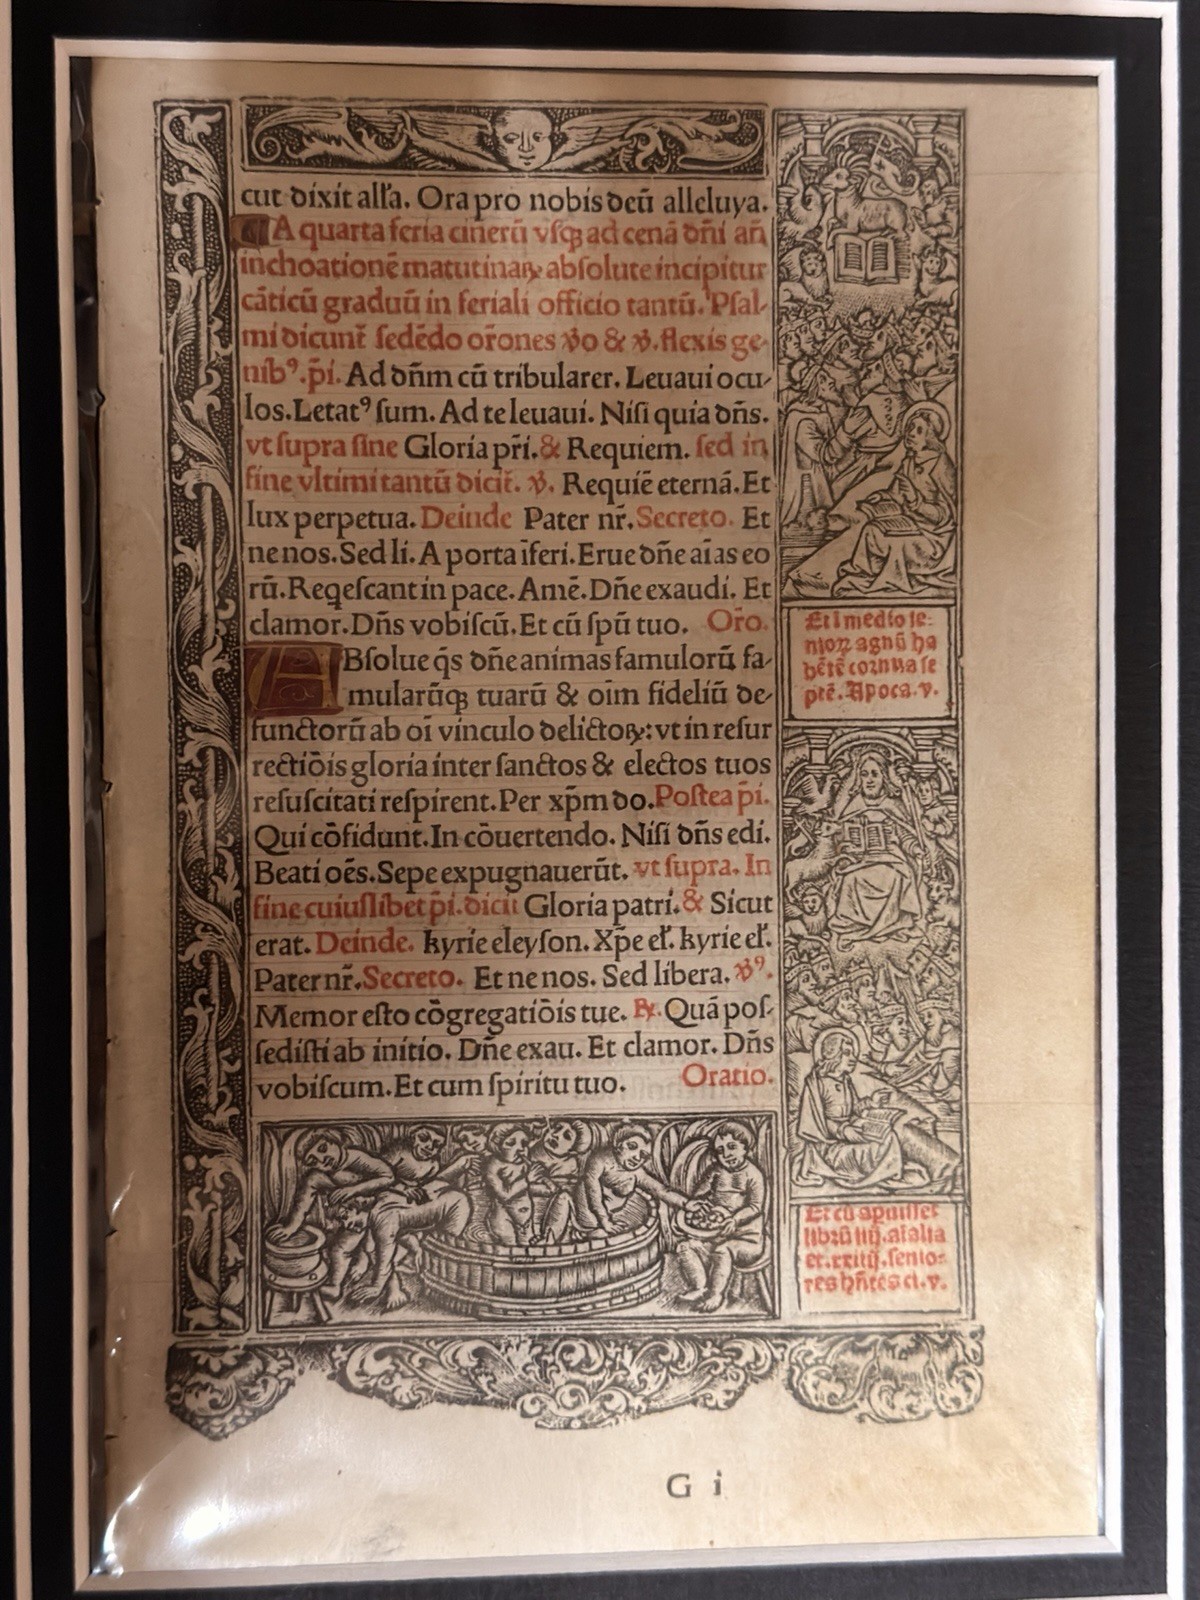 cut dixit all'a. Ora pro nobis deū alleluya.
A quarta feria cinerū vsqꝫ ad cenā dñi añ
inchoationē matutinaꝝ absolute incipitur
cāticū graduū in feriali officio tantū. Psal-
mi dicunt̄ sedēdo or̄ones ꝟo & ꝟ. flexis ge-
nibꝰ. p̄i. Ad dñm cū tribularer. Leuaui ocu-
los. Letatꝰ sum. Ad te leuaui. Nisi quia dñs.
vt supra sine Gloria pr̄i. & Requiem. sed in
fine vltimi tantū dicit̄. ꝟ. Requiē eternā. Et
lux perpetua. Deinde Pater nr̄. Secreto. Et
ne nos. Sed li. A porta īferi. Erue dñe aīas eo
rū. Reqescant in pace. Amē. Dñe exaudi. Et
clamor. Dñs vobiscū. Et cū spū tuo. Or̄o.
ABsolue q̄s dñe animas famulorū fa-
mularūqꝫ tuarū & oīm fideliū de-
functorū ab oī vinculo delictoꝝ: vt in resur
rectiōis gloria inter sanctos & electos tuos
resuscitati respirent. Per xp̄m do. Postea p̄i.
Qui cōfidunt. In cōuertendo. Nisi dñs edi.
Beati oēs. Sepe expugnauerūt. vt supra. In
fine cuiuslibet p̄i. dicit̄ Gloria patri. & Sicut
erat. Deinde. kyrie eleyson. Xp̄e el'. kyrie el'.
Pater nr̄. Secreto. Et ne nos. Sed libera. ꝟꝰ.
Memor esto cōgregatiōis tue. ℞. Quā pos-
sedisti ab initio. Dñe exau. Et clamor. Dñs
vobiscum. Et cum spiritu tuo. Oratio.
Et ī medio se-
nioꝝ agnū ha
bētē cornua se
ptē. Apoca. v.
Et cū apuisset
librū iiij. aīalia
et. xxiiij. senio-
res
G i